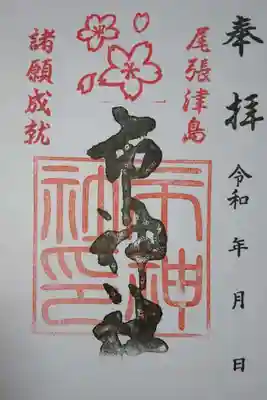 奉拝
令和 年 月 日
尾張津島
市神社
市神
社印
諸願成就